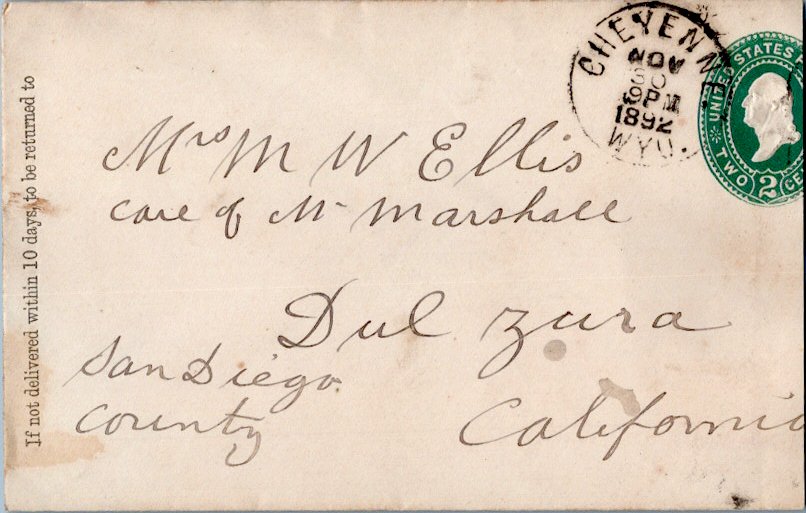 If not delivered within 10 days, to be returned to
CHEYENNE
NOV
30
9PM
1892
WYO.
UNITED STATES
TWO 2 CE
Mrs M W Ellis
Care of Mr Marshall
Dul zura
San Diego
County
California